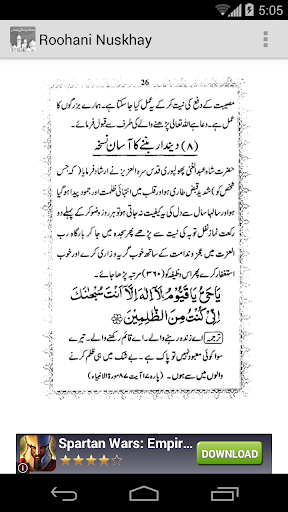 5:05
Roohani Nuskhay
26
مصیبت کے دفع کی نیت کر کے یہ عمل کیا جا سکتا ہے۔ ہمارے بزرگوں کا
عمل ہے۔ دعا ہے اللہ تعالیٰ پڑھنے والے کی طرف سے قبول فرمائے۔
(۸) دیندار بننے کا آسان نسخہ
حضرت شاہ عبدالغنی پھولپوری قدس سرہ العزیز نے ارشاد فرمایا کہ جس
شخص کو شدید قبض طاری ہو اور قلب میں انتہائی ظلمت اور جمود پیدا ہو گیا
ہو اور سالہا سال سے دل کی یہ کیفیت نہ جاتی ہو تو ہر روز وضو کر کے پہلے دو
رکعت نماز نفل توبہ کی نیت سے پڑھے پھر سجدہ میں جا کر بارگاہ رب
العزت میں عجز و ندامت کے ساتھ خوب گریہ و زاری کرے اور خوب
استغفار کرے پھر اس وظیفہ کو (۳۶۰) مرتبہ پڑھا جائے۔
يَا حَيُّ يَا قَيُّوْمُ لَآ اِلٰهَ اِلَّآ اَنْتَ سُبْحٰنَكَ
اِنِّيْ كُنْتُ مِنَ الظّٰلِمِيْنَ
ترجمہ: اے زندہ رہنے والے۔ اے قائم رکھنے والے۔ تیرے
سوا کوئی معبود نہیں تو پاک ہے۔ بے شک میں ہی ظلم کرنے
والوں میں سے ہوں۔ (پارہ ۱۷ آیت ۸۷ سورۃ الانبیاء)
Spartan Wars: Empir...
DOWNLOAD